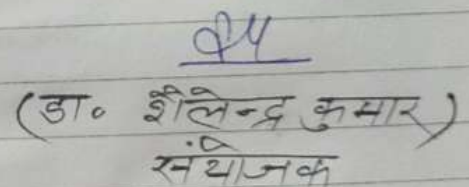 (डा० शैलेन्द्र कुमार)
संयोजक